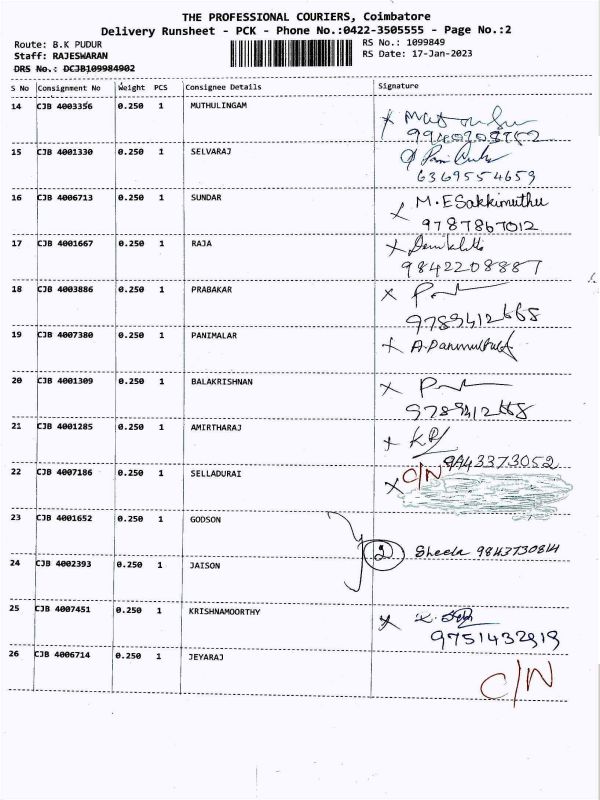 THE PROFESSIONAL COURIERS, Coimbatore
Delivery Runsheet - PCK - Phone No.:0422-3505555 - Page No.:2
Route: B.K PUDUR
RS No.: 1099849
Staff: RAJESWARAN
RS Date: 17-Jan-2023
DRS No.: DCJB109984902
S No Consignment No Weight PCS Consignee Details Signature
14 CJB 4003356 0.250 1 MUTHULINGAM
15 CJB 4001330 0.250 1 SELVARAJ
6369554659
16 CJB 4006713 0.250 1 SUNDAR M.ESakkimuthu
9787867012
17 CJB 4001667 0.250 1 RAJA
9842208887
18 CJB 4003886 0.250 1 PRABAKAR
9789412668
19 CJB 4007380 0.250 1 PANIMALAR
20 CJB 4001309 0.250 1 BALAKRISHNAN
9789412668
21 CJB 4001285 0.250 1 AMIRTHARAJ
9443373052
22 CJB 4007186 0.250 1 SELLADURAI C/N
23 CJB 4001652 0.250 1 GODSON
2 Sheela 9843730814
24 CJB 4002393 0.250 1 JAISON
25 CJB 4007451 0.250 1 KRISHNAMOORTHY
9751432919
26 CJB 4006714 0.250 1 JEYARAJ
C/N